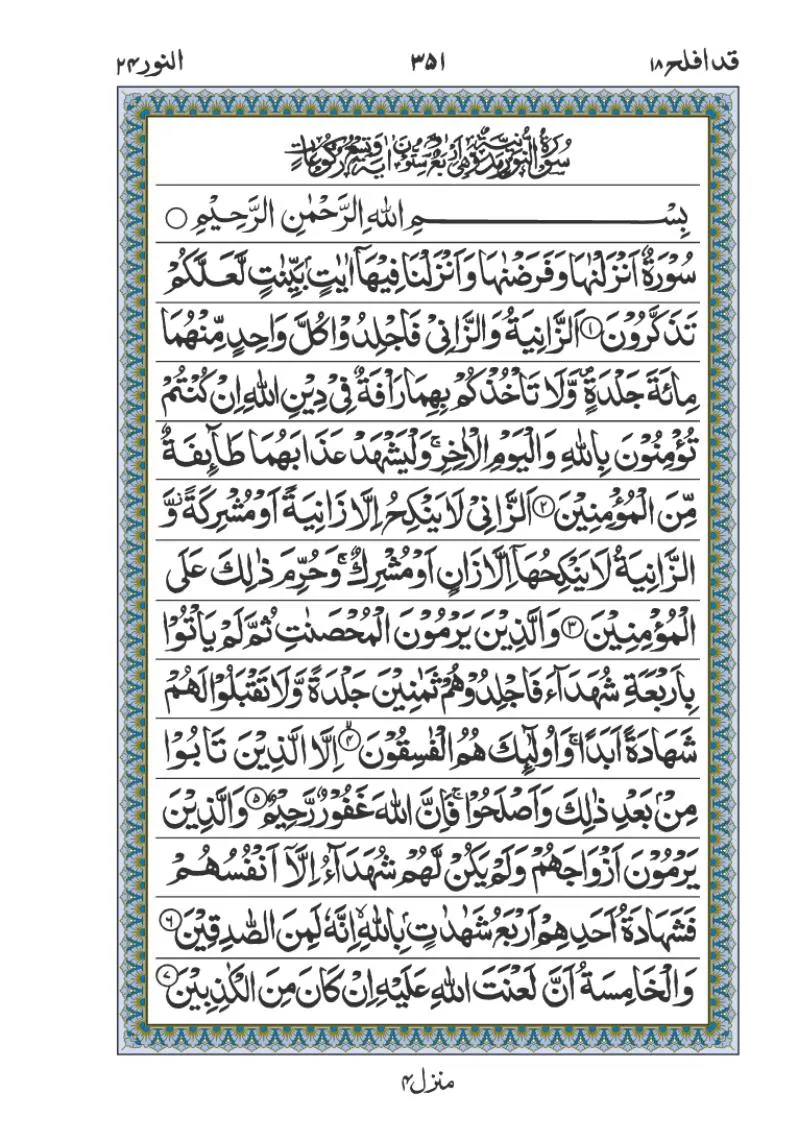 قد افلح ۱۸
۳۵۱
النور ۲۴
سُوْرَةُ النُّوْرِ مَدَنِيَّةٌ وَّهِيَ اَرْبَعٌ وَّسِتُّوْنَ اٰيَةً وَّتِسْعُ رُكُوْعَاتٍ
بِسْمِ اللّٰهِ الرَّحْمٰنِ الرَّحِيْمِ ○
سُوْرَةٌ اَنْزَلْنٰهَا وَفَرَضْنٰهَا وَاَنْزَلْنَا فِيْهَاۤ اٰيٰتٍۭ بَيِّنٰتٍ لَّعَلَّكُمْ
تَذَكَّرُوْنَ ۱ اَلزَّانِيَةُ وَالزَّانِيْ فَاجْلِدُوْا كُلَّ وَاحِدٍ مِّنْهُمَا
مِائَةَ جَلْدَةٍ۪ وَّلَا تَاْخُذْكُمْ بِهِمَا رَاْفَةٌ فِيْ دِيْنِ اللّٰهِ اِنْ كُنْتُمْ
تُؤْمِنُوْنَ بِاللّٰهِ وَالْيَوْمِ الْاٰخِرِۚ وَلْيَشْهَدْ عَذَابَهُمَا طَآئِفَةٌ
مِّنَ الْمُؤْمِنِيْنَ ۲ اَلزَّانِيْ لَا يَنْكِحُ اِلَّا زَانِيَةً اَوْ مُشْرِكَةً۫ وَّ
الزَّانِيَةُ لَا يَنْكِحُهَاۤ اِلَّا زَانٍ اَوْ مُشْرِكٌۚ وَحُرِّمَ ذٰلِكَ عَلَى
الْمُؤْمِنِيْنَ ۳ وَالَّذِيْنَ يَرْمُوْنَ الْمُحْصَنٰتِ ثُمَّ لَمْ يَاْتُوْا
بِاَرْبَعَةِ شُهَدَآءَ فَاجْلِدُوْهُمْ ثَمٰنِيْنَ جَلْدَةً وَّلَا تَقْبَلُوْا لَهُمْ
شَهَادَةً اَبَدًاۚ وَاُولٰٓئِكَ هُمُ الْفٰسِقُوْنَ ۴ اِلَّا الَّذِيْنَ تَابُوْا
مِنْۢ بَعْدِ ذٰلِكَ وَاَصْلَحُوْاۚ فَاِنَّ اللّٰهَ غَفُوْرٌ رَّحِيْمٌ ۵ وَالَّذِيْنَ
يَرْمُوْنَ اَزْوَاجَهُمْ وَلَمْ يَكُنْ لَّهُمْ شُهَدَآءُ اِلَّاۤ اَنْفُسُهُمْ
فَشَهَادَةُ اَحَدِهِمْ اَرْبَعُ شَهٰدٰتٍۭ بِاللّٰهِۙ اِنَّهٗ لَمِنَ الصّٰدِقِيْنَ ۶
وَالْخَامِسَةُ اَنَّ لَعْنَتَ اللّٰهِ عَلَيْهِ اِنْ كَانَ مِنَ الْكٰذِبِيْنَ ۷
منزل ۴